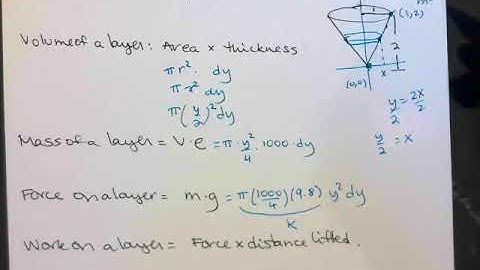 (1,2)
Volume of a layer: Area × thickness
πr² · dy
πx² dy
π(y/2)² dy
2
x
(0,0)
y/2 = 2x/2
y/2 = x
Mass of a layer = V·ρ = π · y²/4 · 1000 · dy
Force on a layer = m·g = π(1000/4)(9.8) y² dy
K
Work on a layer = Force × distance lifted.